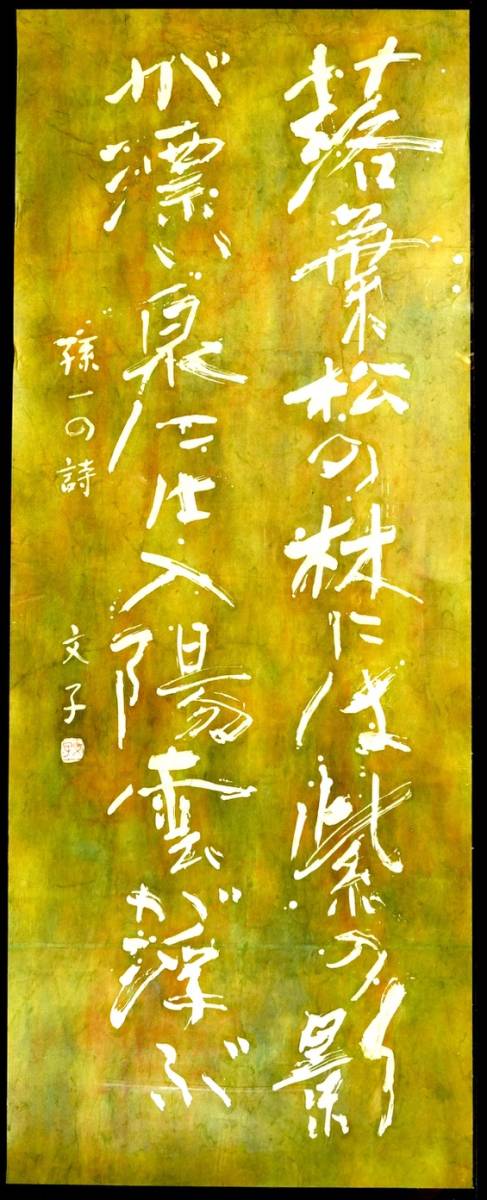 落葉松の林には紫の影
が漂い泉には入陽雲が浮ぶ
孫一の詩
文子